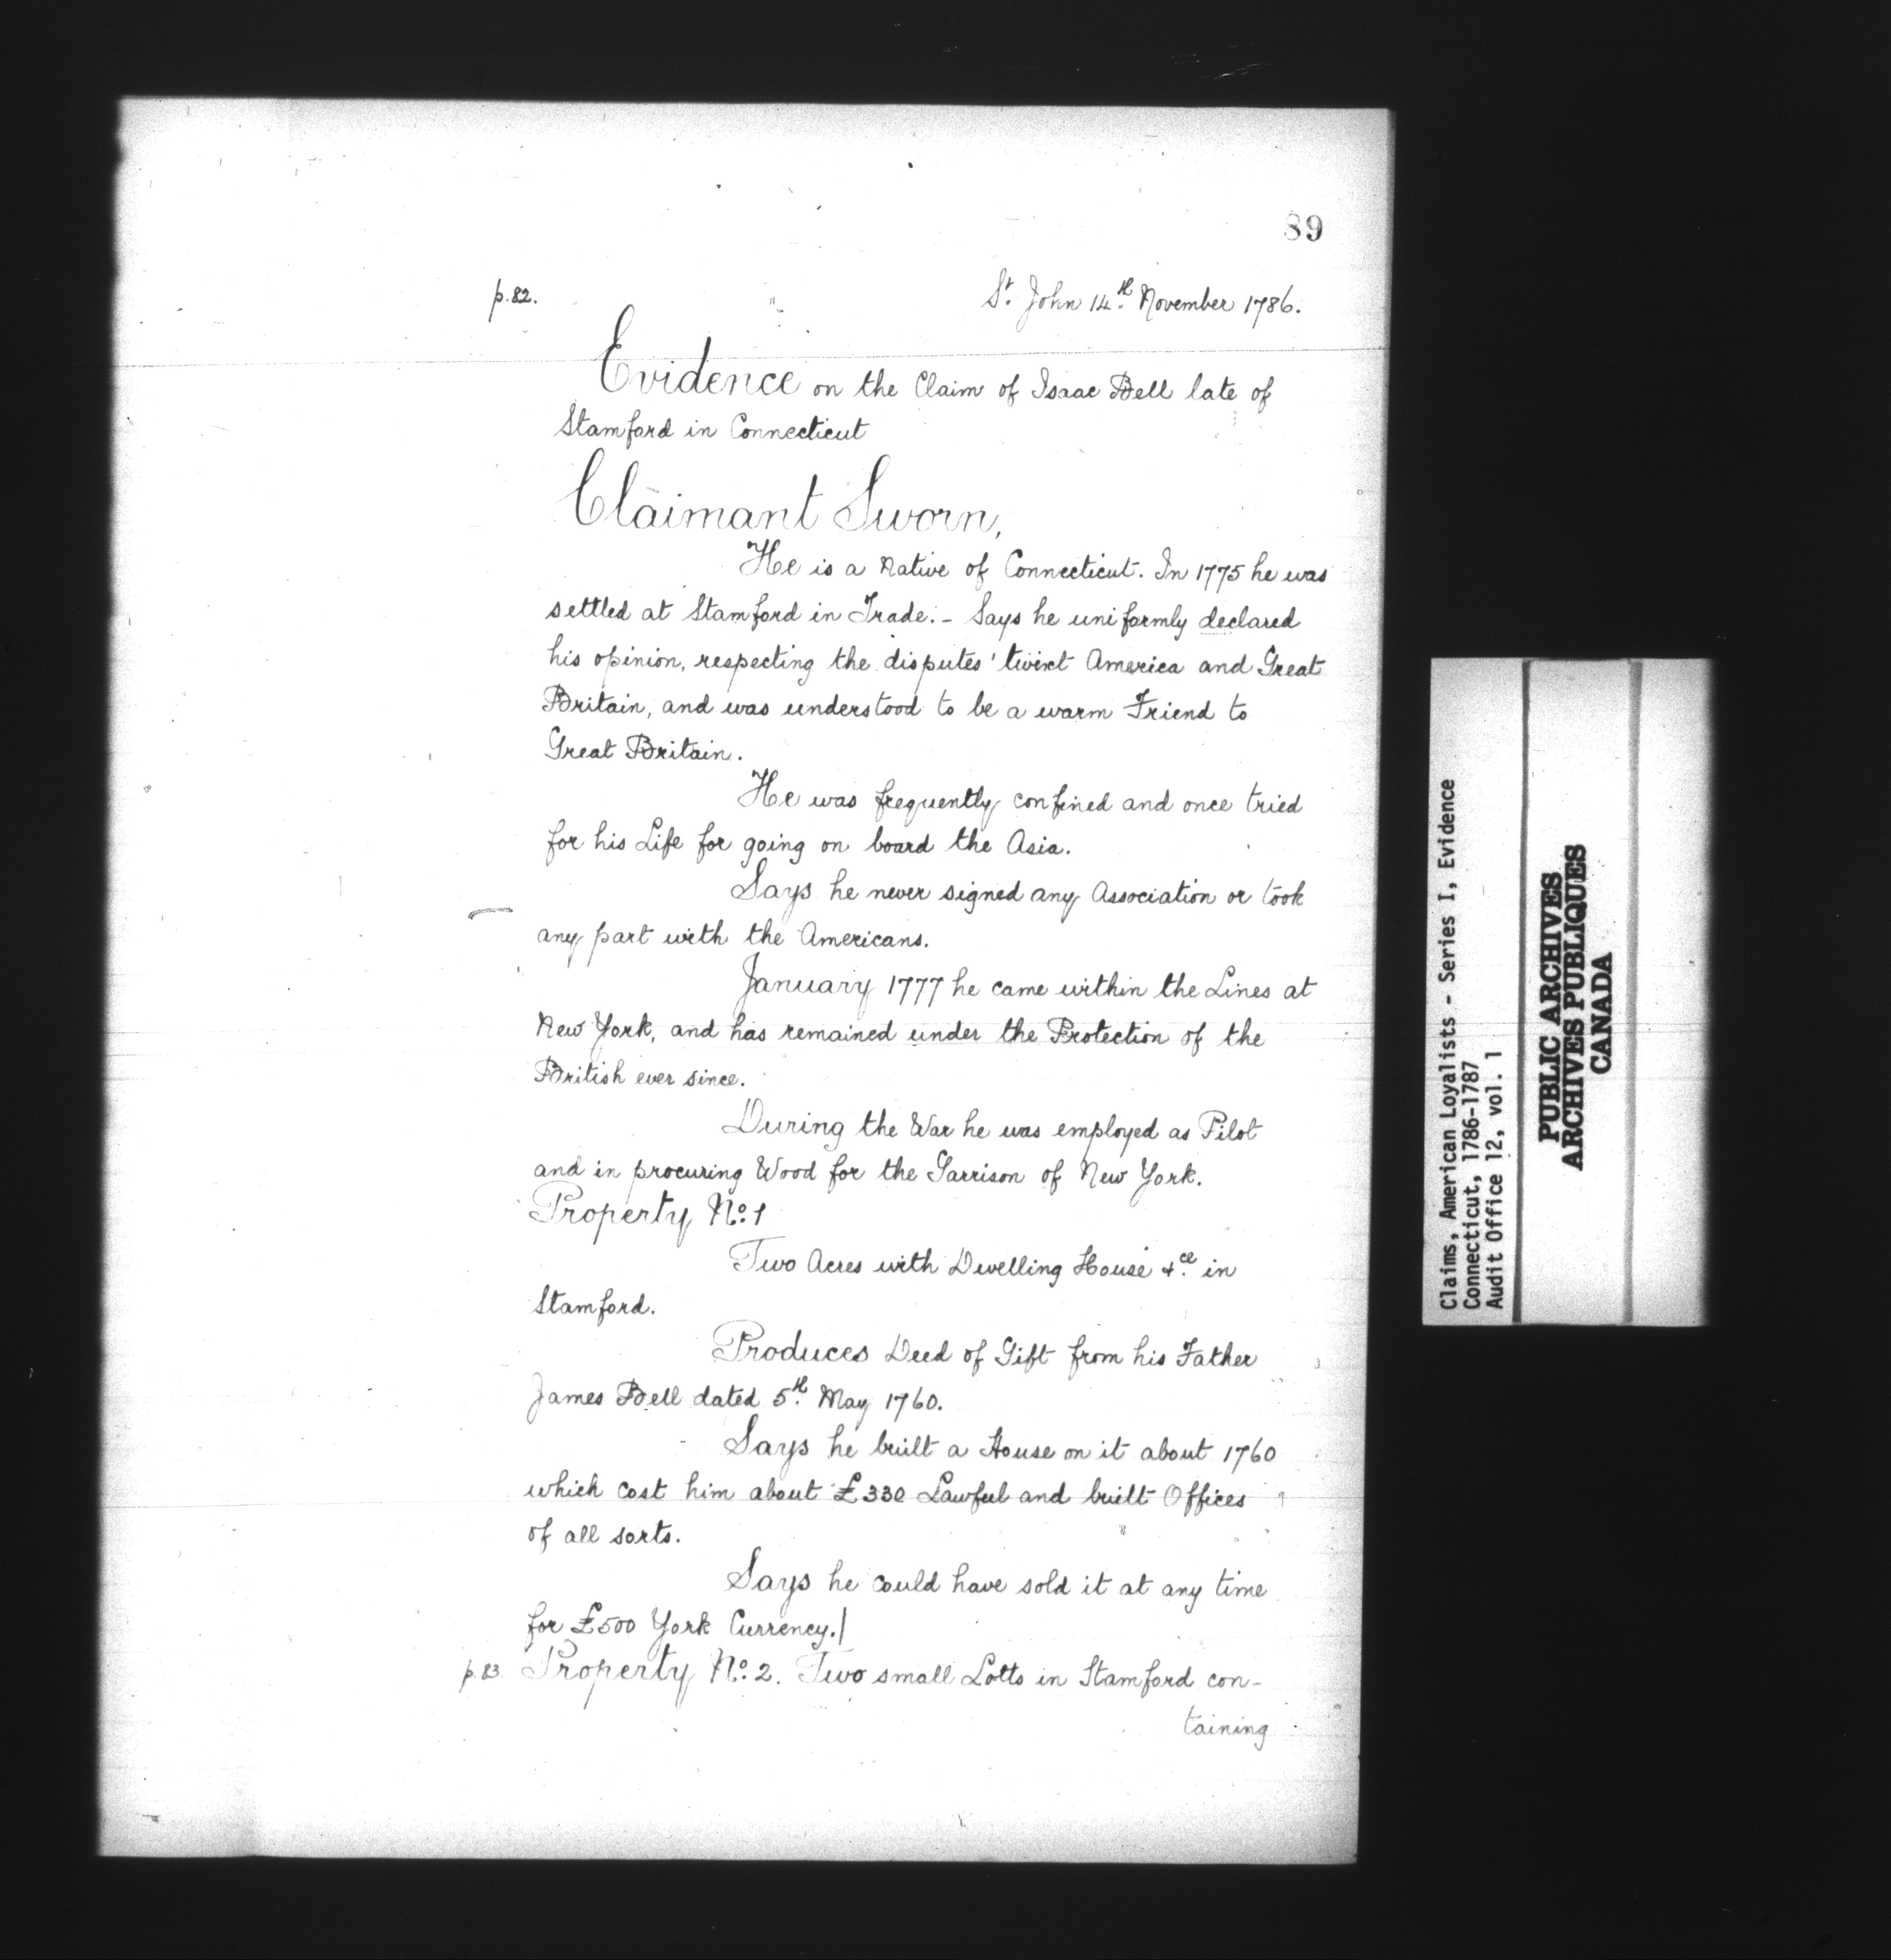 89
p. 82.
St. John 14th November 1786.
Evidence on the Claim of Isaac Bell late of
Stamford in Connecticut
Claimant Sworn,
He is a Native of Connecticut. In 1775 he was
settled at Stamford in Trade. - Says he uniformly declared
his opinion, respecting the disputes 'twixt America and Great
Britain, and was understood to be a warm Friend to
Great Britain.
He was frequently confined and once tried
for his Life for going on board the Asia.
Says he never signed any Association or took
any part with the Americans.
January 1777 he came within the Lines at
New York, and has remained under the Protection of the
British ever since.
During the War he was employed as Pilot
and in procuring Wood for the Garrison of New York.
Property No. 1
Two Acres with Dwelling House &ce. in
Stamford.
Produces Deed of Gift from his Father
James Bell dated 5th May 1760.
Says he built a House on it about 1760
which cost him about £330 Lawful and built Offices
of all sorts.
Says he could have sold it at any time
for £500 York Currency./
p. 83 Property No. 2. Two small Lotts in Stamford con-
taining
Claims, American Loyalists - Series I, Evidence
Connecticut, 1786-1787
Audit Office 12, vol. 1
PUBLIC ARCHIVES
ARCHIVES PUBLIQUES
CANADA